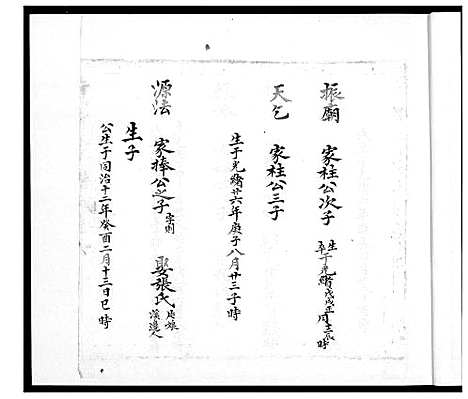 振廟 家柱公次子 生 卒于光緒戊戌正月十三戌時
天乞 家柱公三子
生于光緒廿六年庚子八月廿三子時
源法 家捧公之子 字則 娶張氏 溪邊人
生子
公生于同治十二年癸酉二月十三日巳時